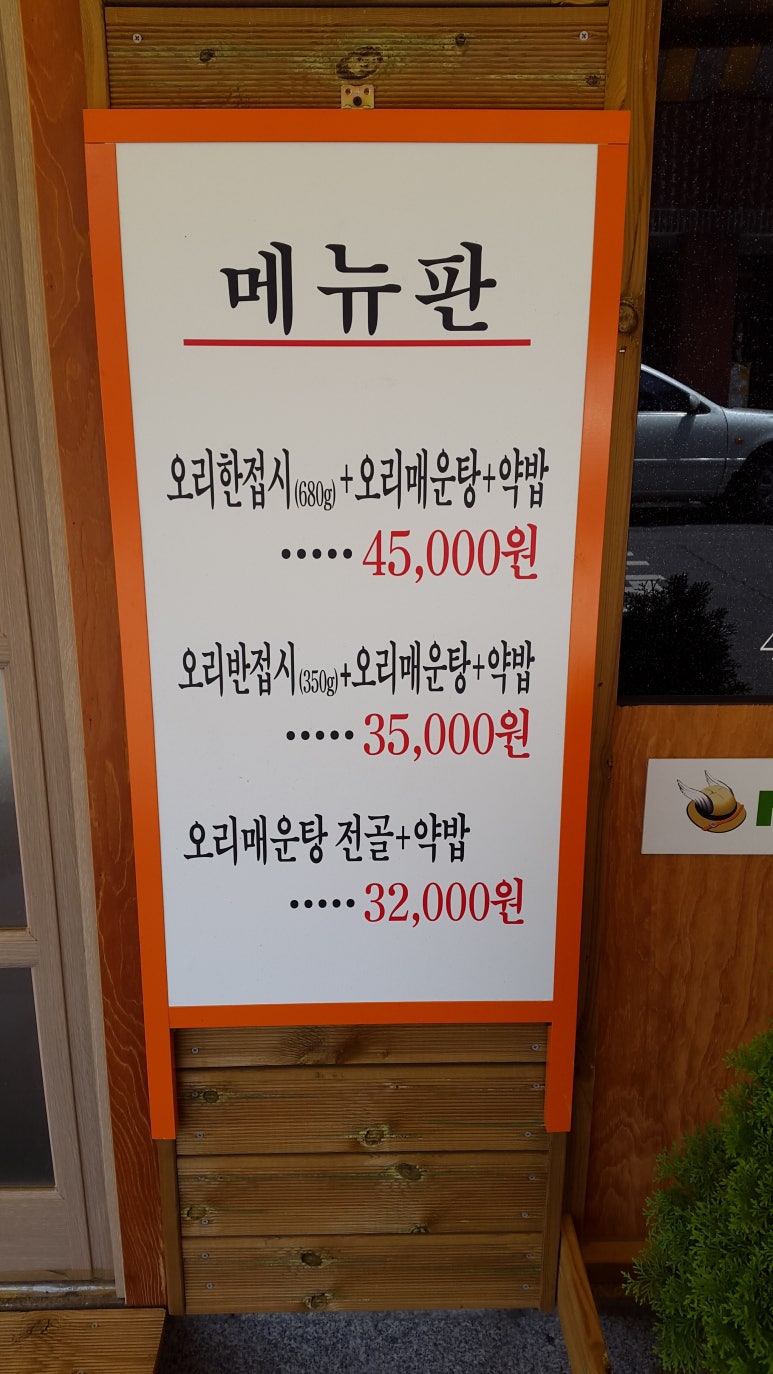 메뉴판
오리한접시(680g)+오리매운탕+약밥
····· 45,000원
오리반접시(350g)+오리매운탕+약밥
····· 35,000원
오리매운탕 전골+약밥
····· 32,000원